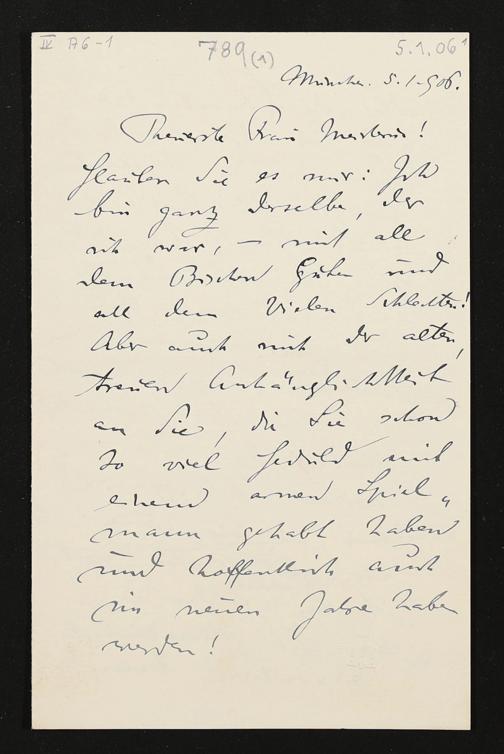 IV A6-1
789 (1)
5.1.06¹
München. 5.1.906.
Theuerste Frau Meisterin!
Glauben Sie es mir: Ich
bin ganz derselbe, der
ich war, – mit all
dem Bischen Guten und
all dem Vielen Schlechten!
Aber auch mit der alten,
treuen Anhänglichkeit
an Sie, die Sie schon
so viel Geduld mit
einem armen Spiel„
mann gehabt haben
und hoffentlich auch
im neuen Jahre haben
werden!